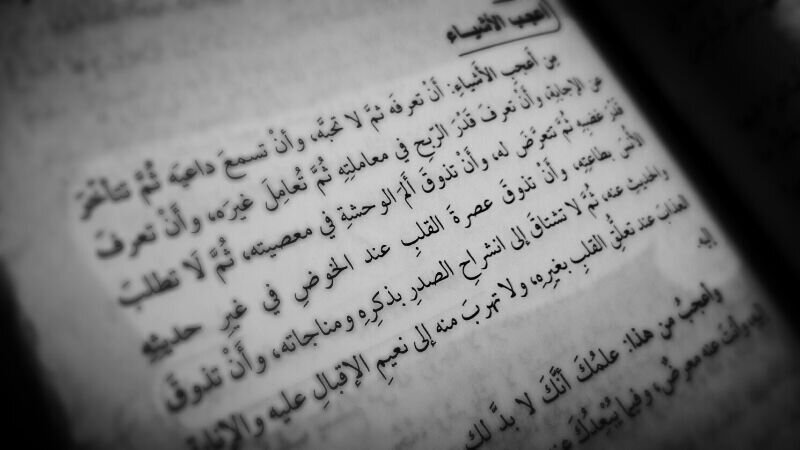 أعجب الأشياء
مِن أعجبِ الأشياءِ: أنْ تعرفَه ثمَّ لا تحبَّه، وأنْ تسمعَ داعيَه ثُمَّ تتأخَّرَ
عن الإجابةِ، وأنْ تعرفَ قَدْرَ الرّبحِ في معاملتِهِ ثُمَّ تُعامِلَ غيرَه، وأنْ تعرفَ
قَدْرَ غضبِهِ ثُمَّ تتعرَّضَ له، وأنْ تذوقَ أَلمَ الوحشةِ في معصيتِه، ثُمَّ لَا تطلبَ
الأُنسَ بطاعتِهِ، وأنْ تذوقَ عصرةَ القلبِ عند الخوضِ في غيرِ حديثِهِ
والحديثِ عنه، ثُمَّ لا تشتاقَ إلى انشراحِ الصدرِ بذكرِهِ ومناجاته، وأَنْ تذوقَ
العذابَ عند تعلُّقِ القلبِ بغيرِه، ولا تهربَ منه إلى نعيمِ الإقبالِ عليه والإنابةِ
إليه.
وأعجبُ من هذا: علمُكَ أنَّكَ لا بدَّ لك
إليه وأنتَ عنه معرضٌ، وفيما يُبْعِدُكَ عنه